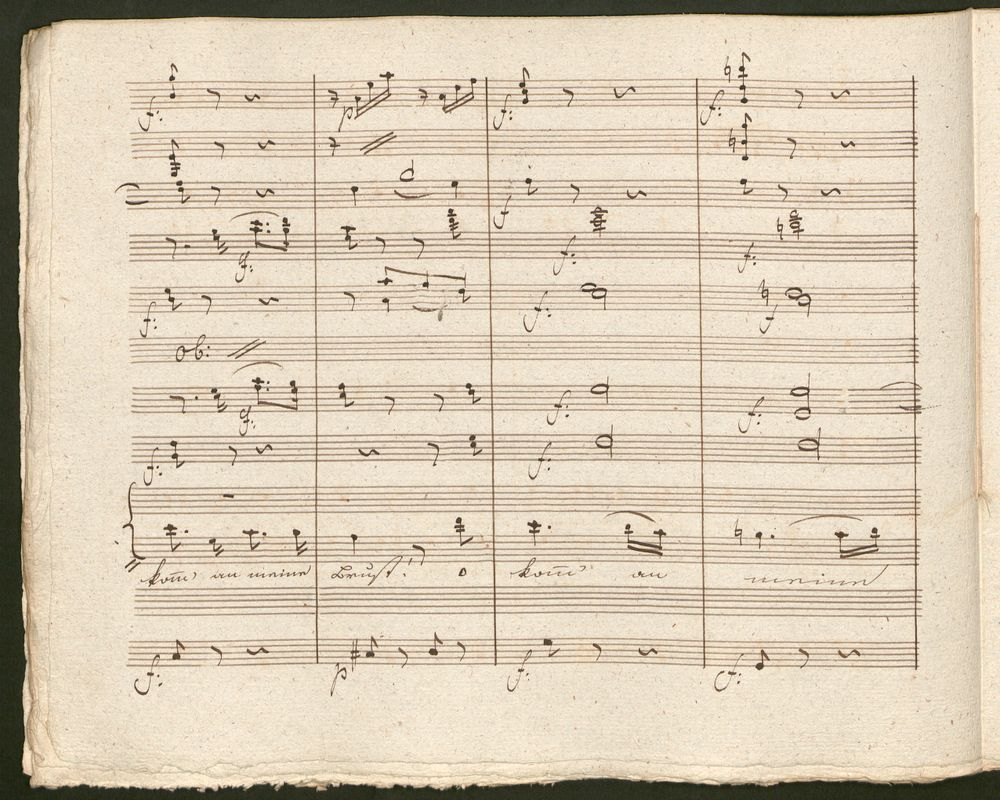 f: p f: f:
f
f: f: f:
f: f: f
ob:
f: f: f:
f: f:
kom̅ an meine Brust!! o kom̅ an meine
f: p f: f: